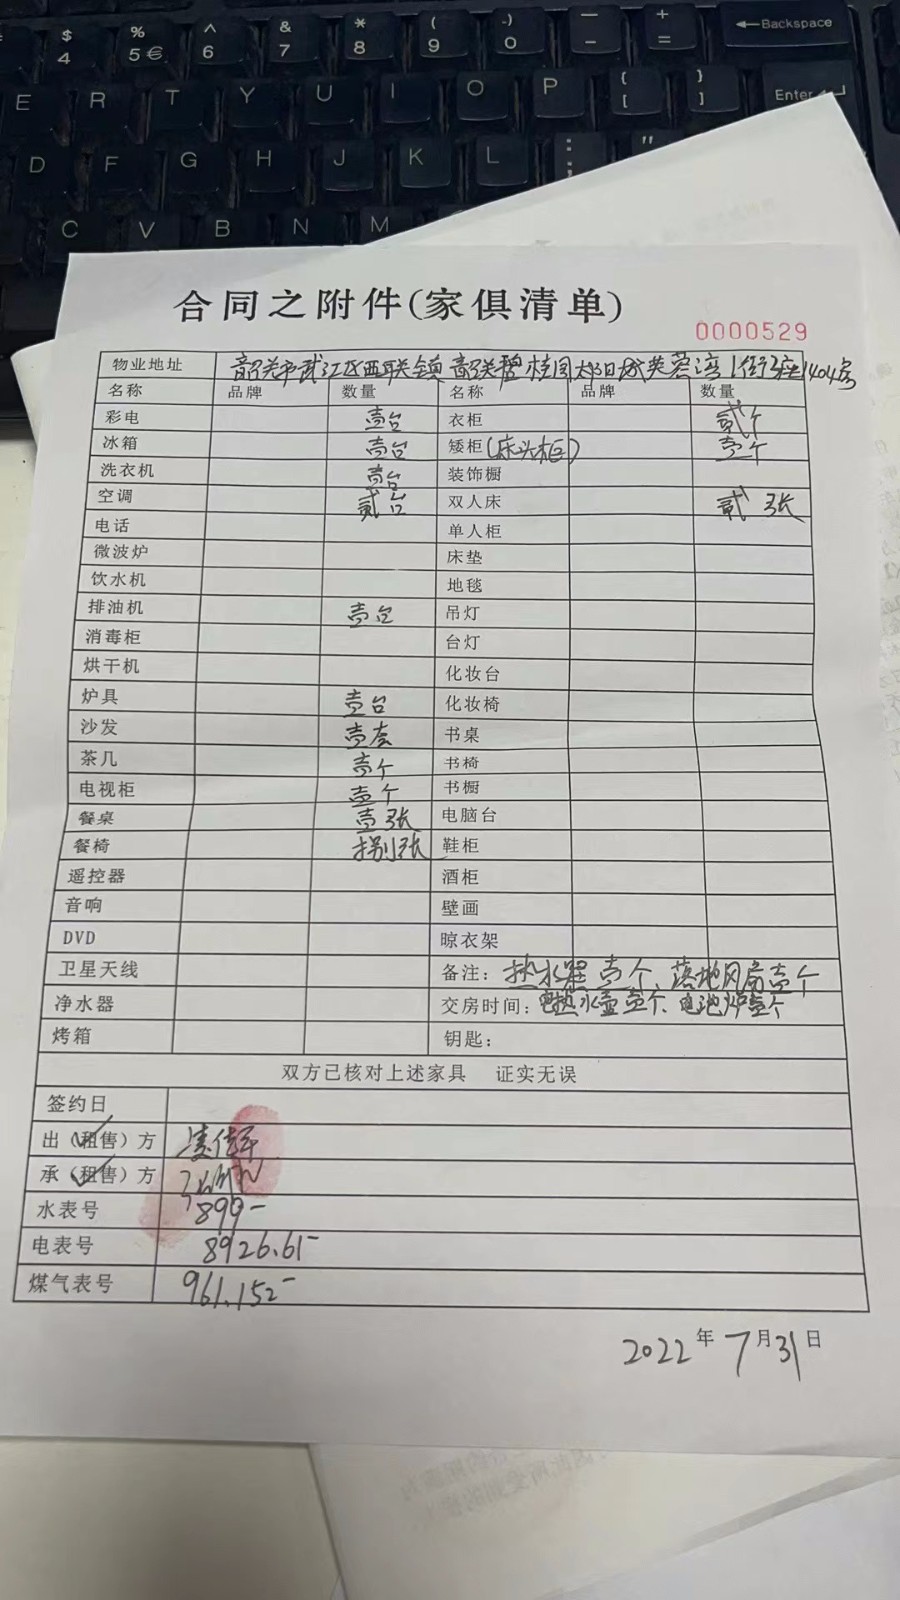 $ % ^ & * ( -) — +
4 5 € 6 7 8 9 0 - = Backspace
E R T Y U I O P { [ } ] Enter
D F G H J K L : ; "
C V B N M
合同之附件(家俱清单)
0000529
物业地址 韶关市武江区西联镇韶关碧桂园太阳城芙蓉湾1街3座1404房
名称 品牌 数量 名称 品牌 数量
彩电 壹台 衣柜 贰个
冰箱 壹台 矮柜(床头柜) 壹个
洗衣机 壹台 装饰橱
空调 贰台 双人床 贰张
电话 单人柜
微波炉 床垫
饮水机 地毯
排油机 壹台 吊灯
消毒柜 台灯
烘干机 化妆台
炉具 壹台 化妆椅
沙发 壹套 书桌
茶几 壹个 书椅
电视柜 壹个 书橱
餐桌 壹张 电脑台
餐椅 捌张 鞋柜
遥控器 酒柜
音响 壁画
DVD 晾衣架
卫星天线 备注: 热水器壹个、落地风扇壹个
净水器 交房时间: 电热水壶壹个、电池炉壹个
烤箱 钥匙:
双方已核对上述家具 证实无误
签约日
出(租售)方
承(租售)方
水表号 899-
电表号 8926.61-
煤气表号 961.152-
2022年7月31日